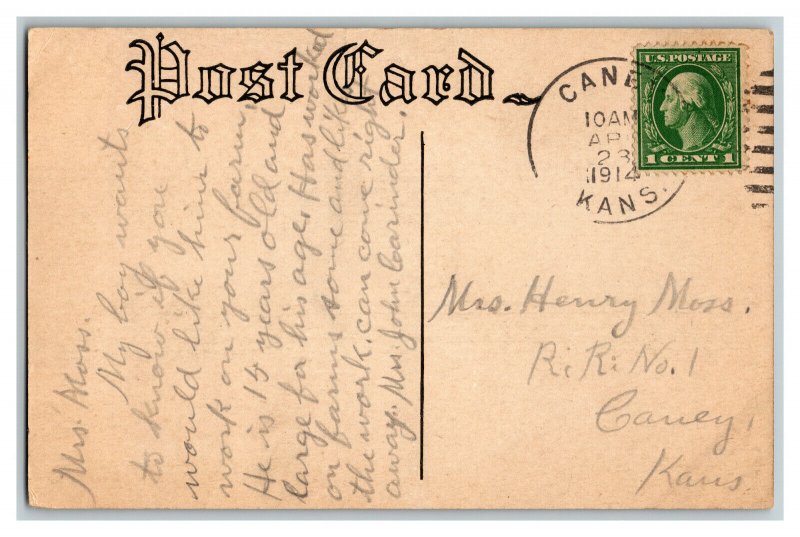 Post Card
CANEY
10AM
APR
23
1914
KANS.
U.S. POSTAGE
1 CENT 1
Mrs. Moss.
My boy wants
to know if you
would like him to
work on your farm,
He is 15 years old and
large for his age. Has worked
on farms some and likes
the work. can come right
away. Mrs. John
Mrs. Henry Moss.
R. R. No. 1
Caney,
Kans